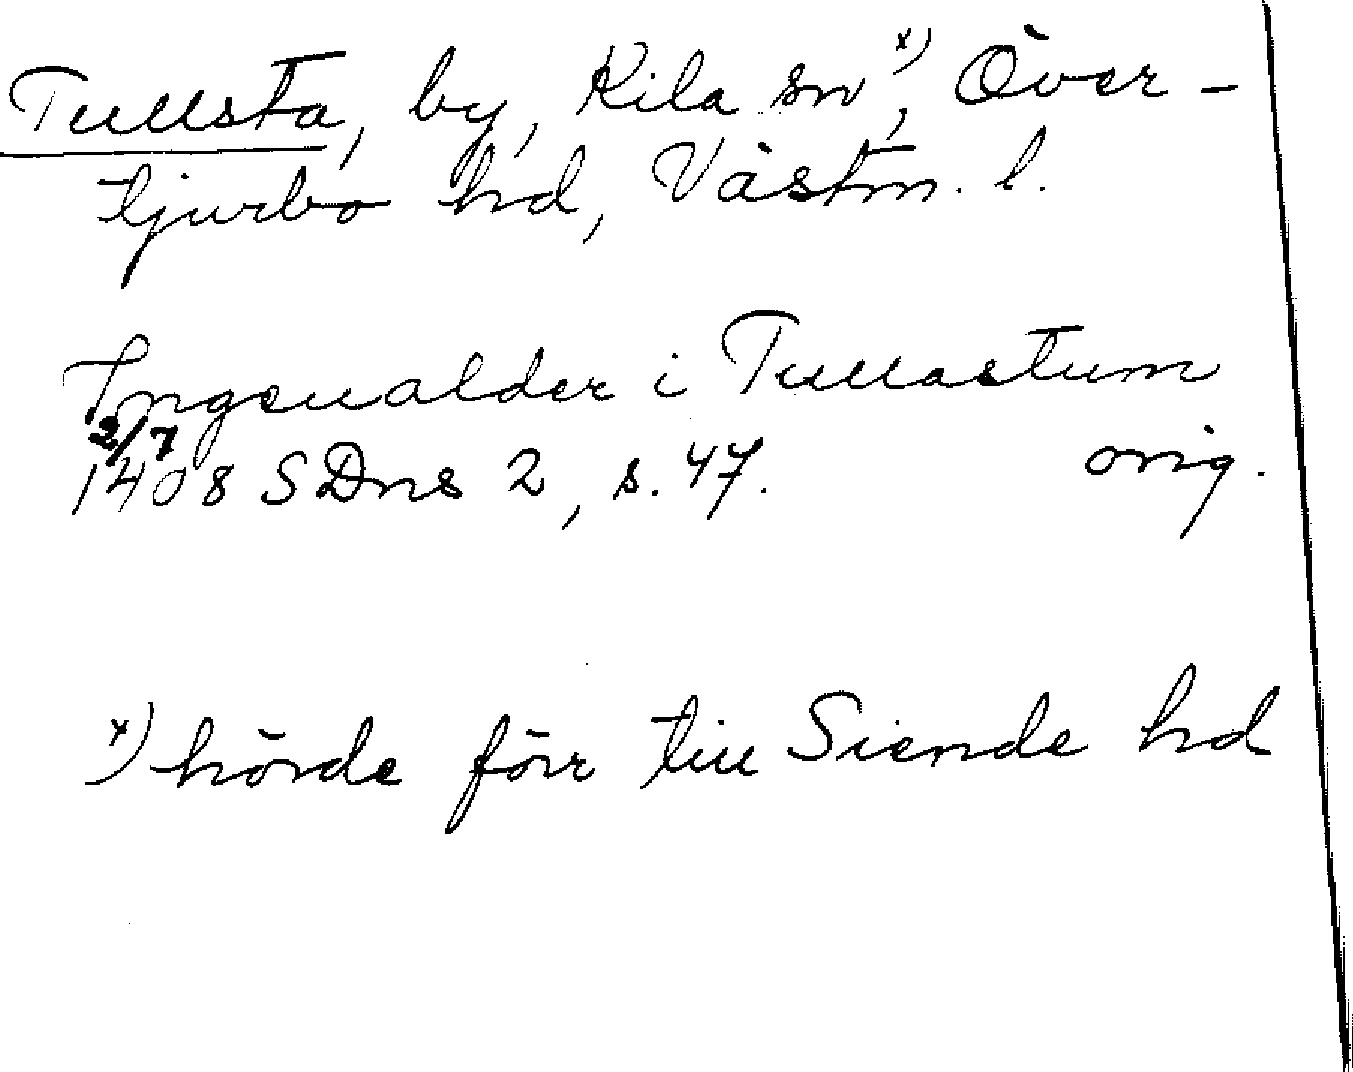 Tullsta, by, Kila sn x), Över-
tjurbo hd, Västm. l.
Ingeualder i Tullastum
2/7
1408 SDns 2, s. 47. orig.
x) hörde förr till Siende hd